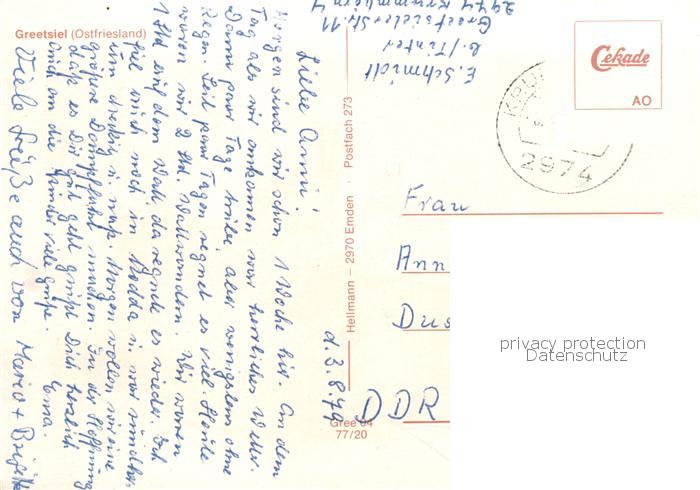 Greetsiel (Ostfriesland)
Liebe Anni!
Morgen sind wir schon 1 Woche hier. An dem
Tag als wir ankamen war herrliches Wetter.
Dann paar Tage trübe aber wenigstens ohne
Regen. Seit paar Tagen regnet es viel. Heute
waren wir 2 Std. Wattwandern. Wir waren
1 Std auf dem Watt, da regnete es wieder. Ich
fiel auch noch in Modda u. war
um dreckig u. naß. Morgen wollen wir eine
größere Dampffahrt machen. In der Hoffnung
daß es Dir gut geht grüßt Dich herzlich
auch an die Kinder viele Grüße. Erna.
Viele Grüße auch von Mario + Brigitte
Hellmann – 2970 Emden · Postfach 273
E. Schmidt
Greetsieler Str. 11
2974 Krummhörn 4
d. 3.8.79
Cekade
AO
2974
Frau
Ann
Dus
DDR
Gree 04
77/20
privacy protection
Datenschutz